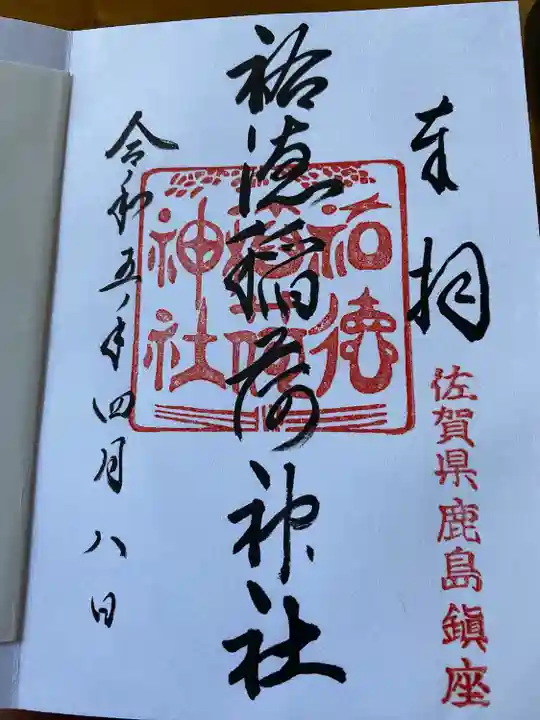 奉拝
佐賀県鹿島鎮座
祐徳稲荷神社
祐徳
稲荷
神社
令和五年四月八日